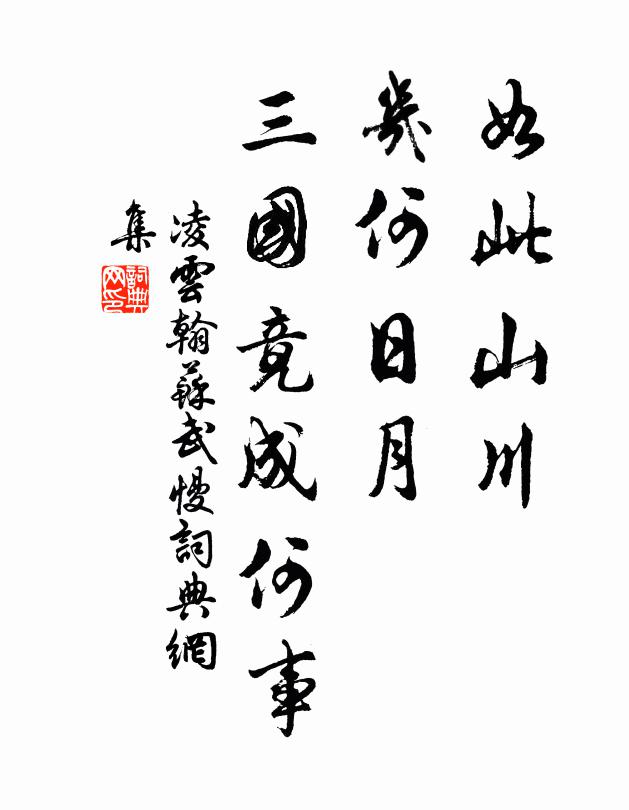 如此山川
幾何日月
三國竟成何事
凌雲翰蘇武慢詞典網
集
詞典
网印